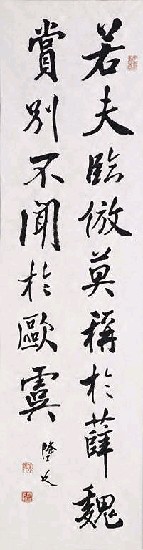 若夫臨倣莫稱於薛魏
賞別不聞於歐虞